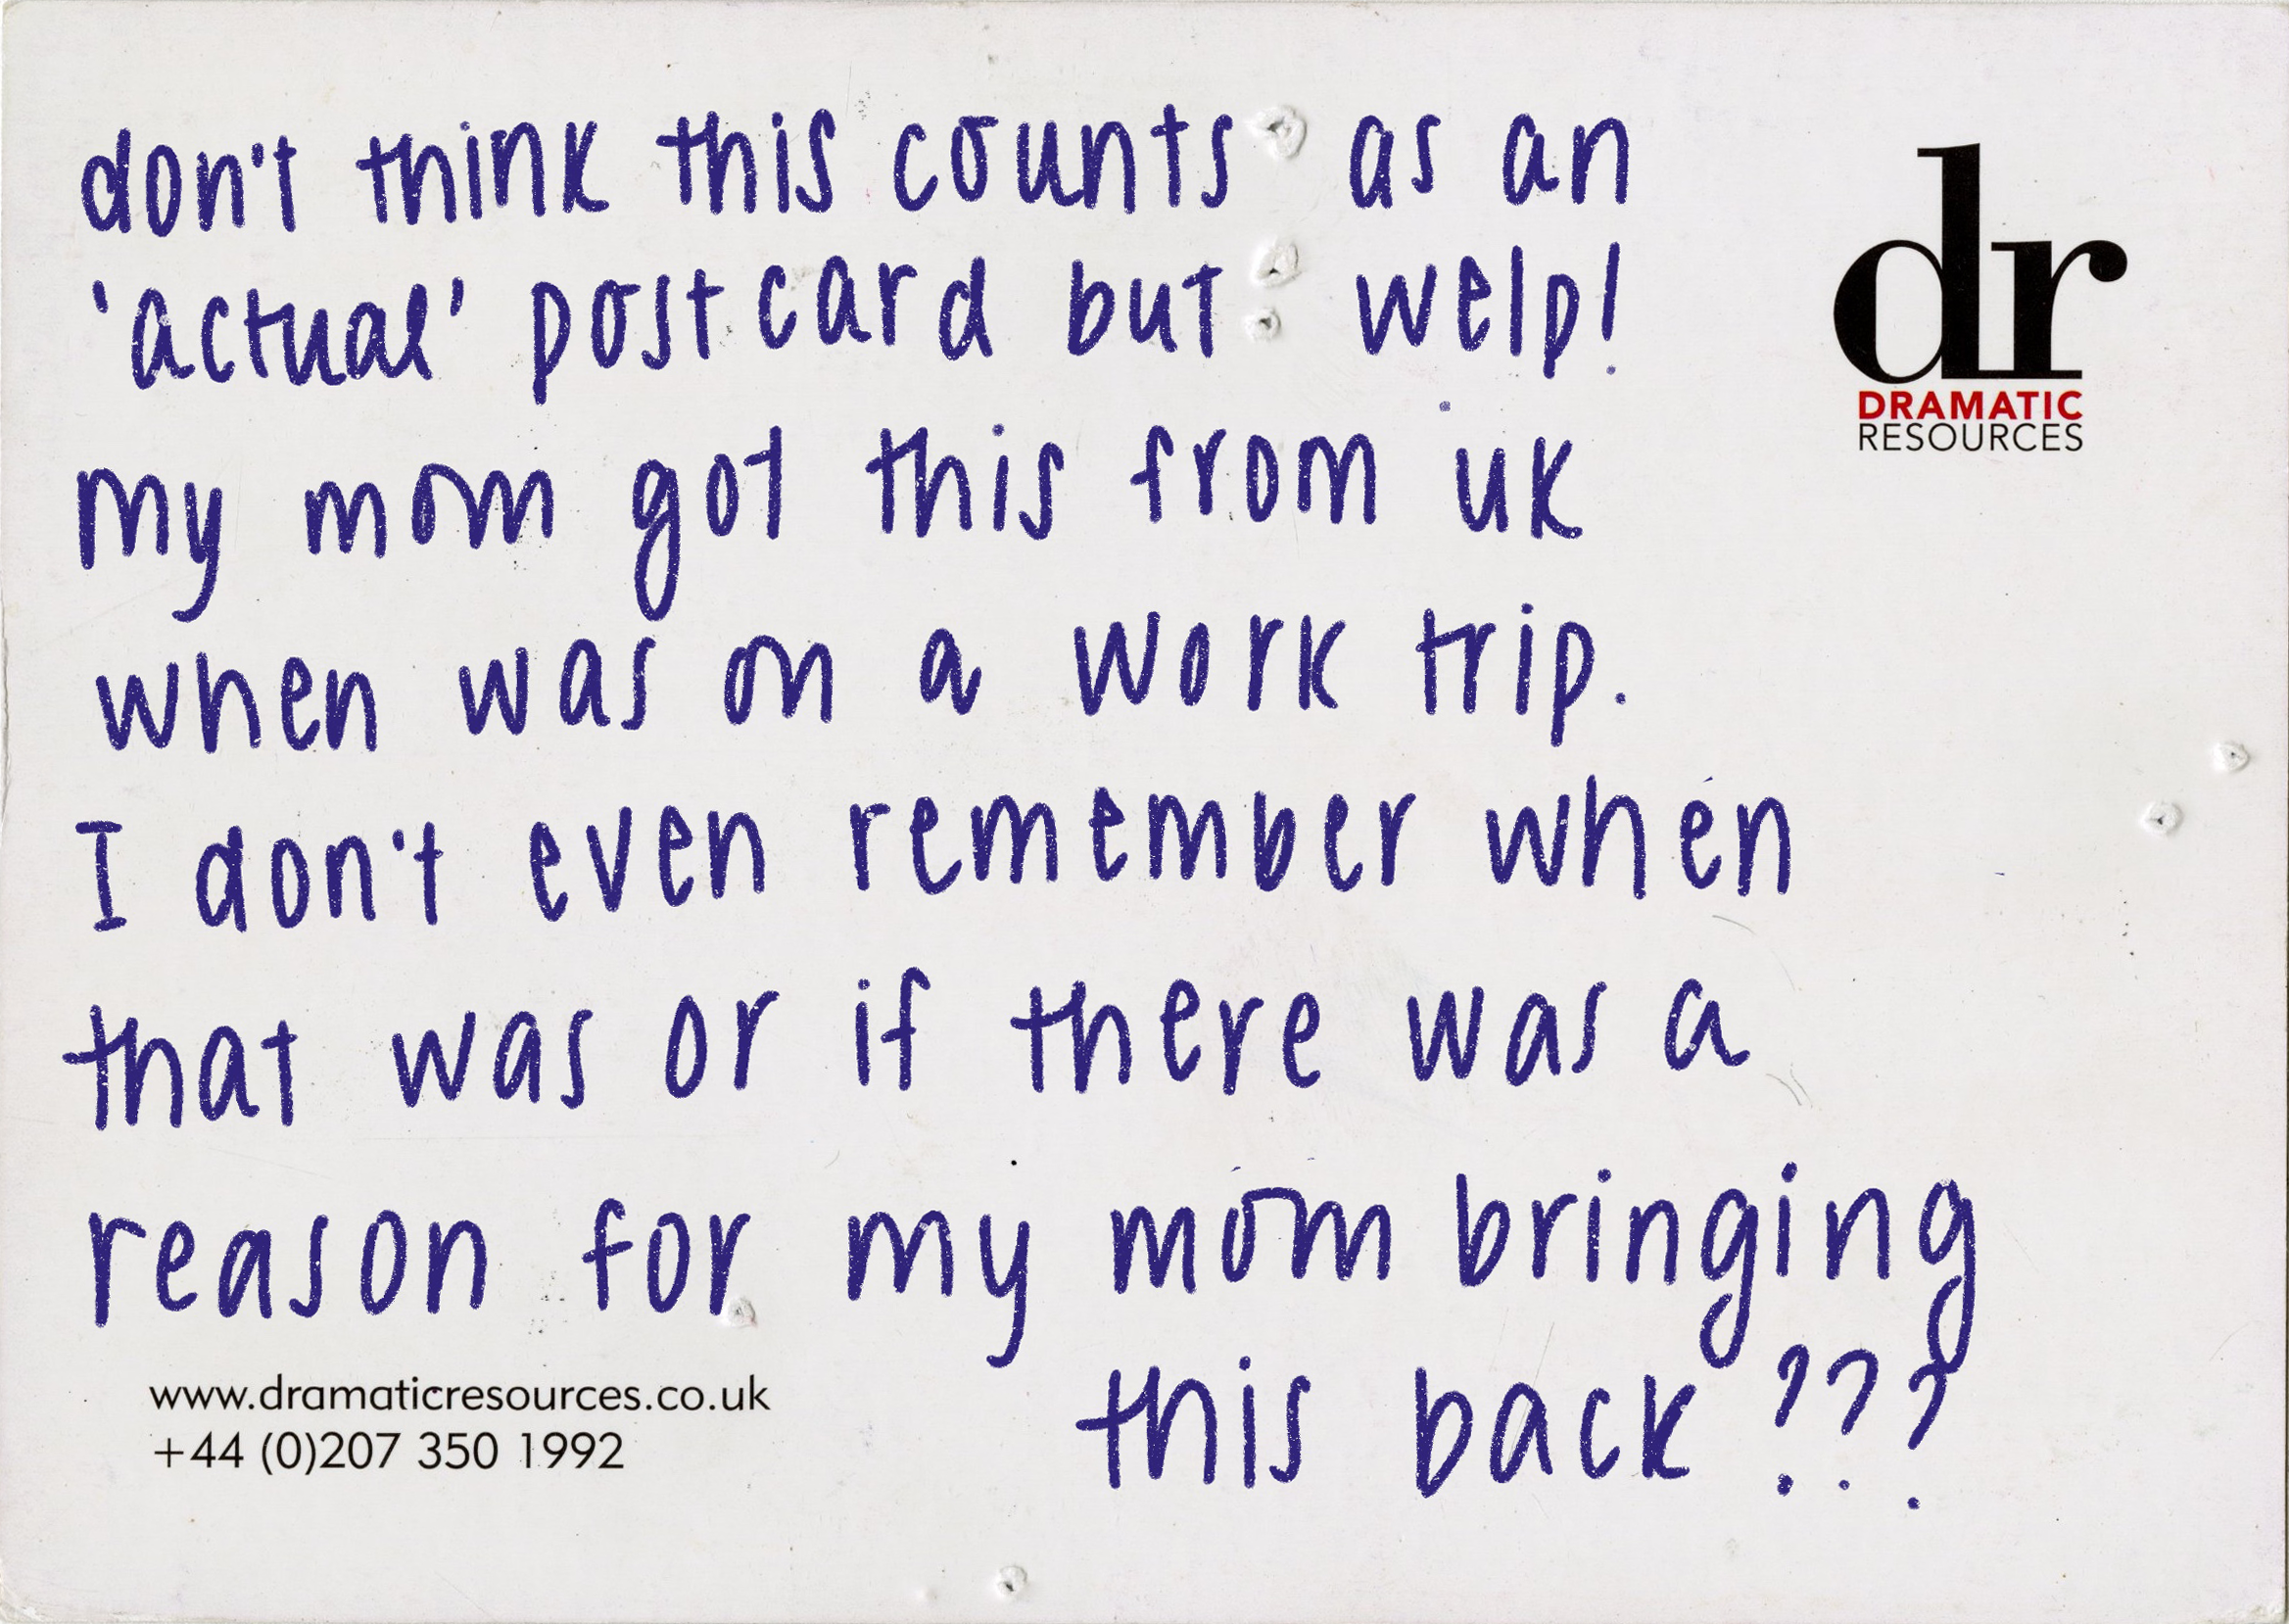 don't think this counts as an
'actual' postcard but welp!
my mom got this from uk
when was on a work trip.
I don't even remember when
that was or if there was a
reason for my mom bringing
this back ???
dr
DRAMATIC
RESOURCES
www.dramaticresources.co.uk
+44 (0)207 350 1992